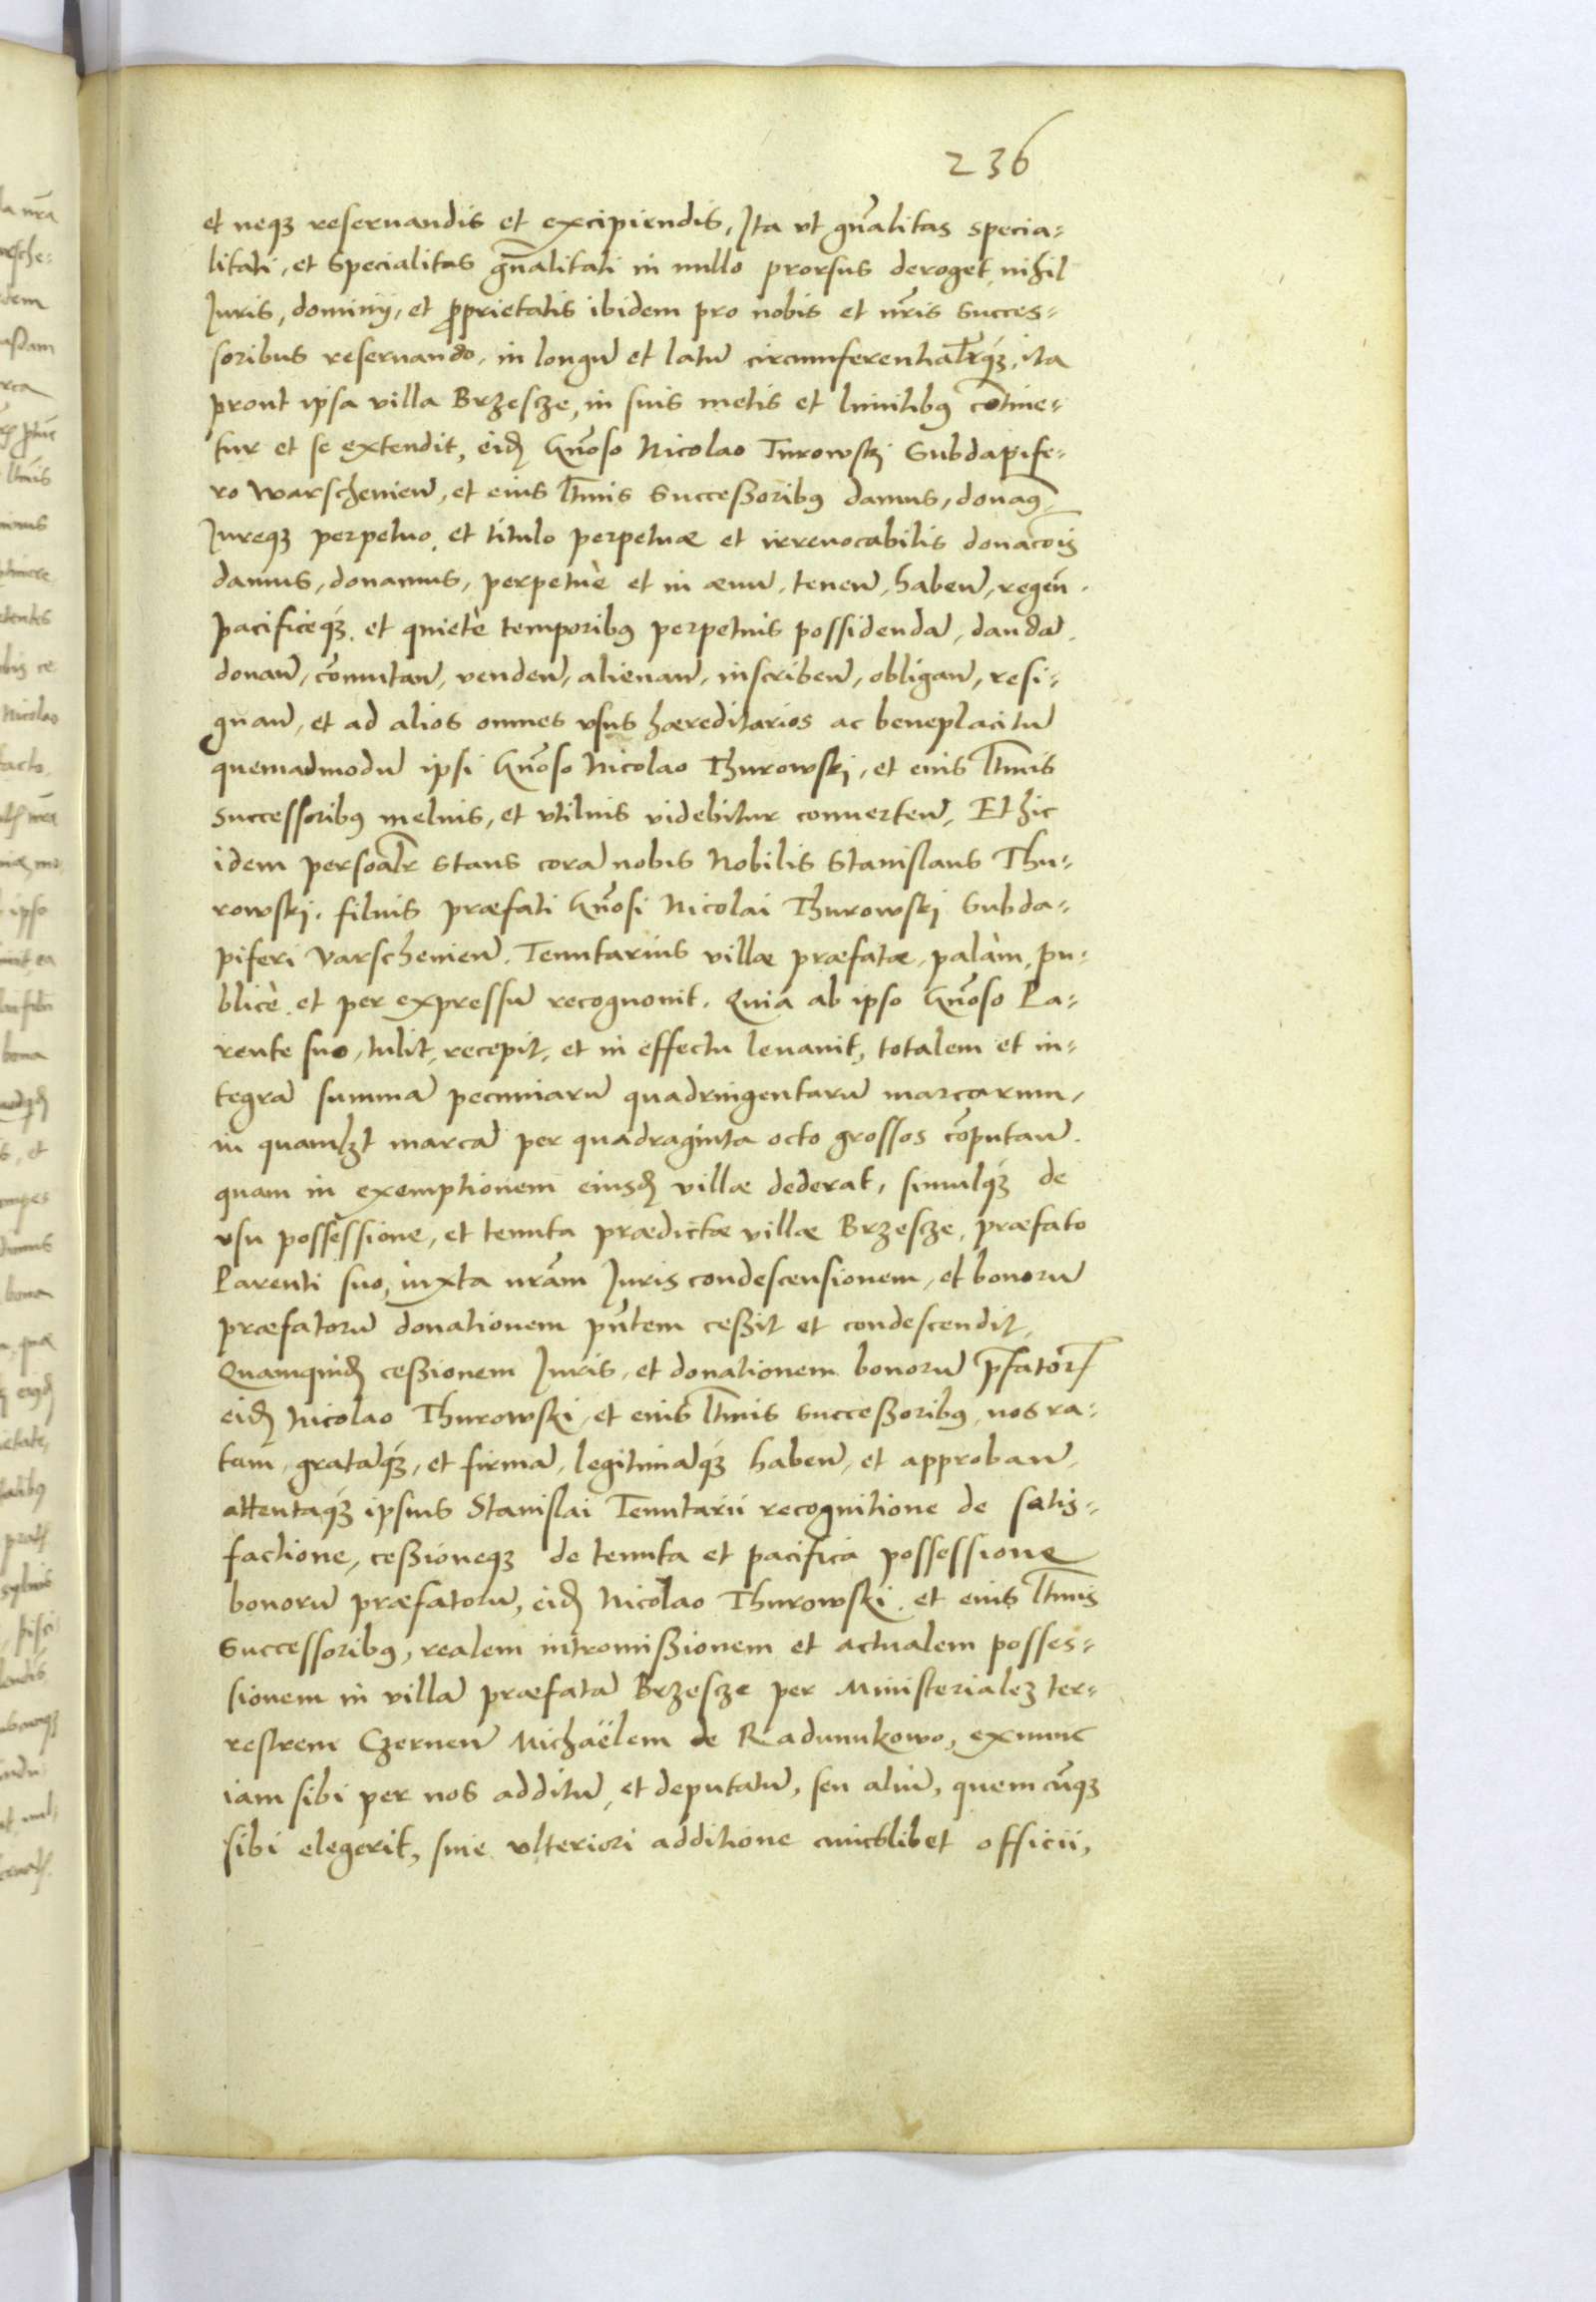 236
et neqȝ reseruandis et excipiendis, Ita vt gn̄alitas specia-
litati, et Specialitas gn̄alitati in nullo prorsus deroget, nihil
Iuris, dominij, et ꝓprietatis ibidem pro nobis et nr̄is succes-
soribus reseruando, in longū et latū circumferentialr̄qȝ, ita
prout ipsa villa Brzescze, in suis metis et limitibꝰ cōtine-
tur et se extendit, eidꝫ Gn̄oso Nicolao Turowskj Subdapife-
ro Warscheniēn, et eius lt̄imis Succeßoribꝰ damus, donaꝰ
Iureqȝ perpetuo, et titulo perpetuæ et irreuocabilis donac̄ois
damus, donamus, perpetuè et in æuū, tenen̄, haben̄, regen̄
pacificeqȝ, et quietè temporibꝰ perpetuis possidendā, dandā
donan̄, com̄utan̄, venden̄, alienan̄, inscriben̄, obligan̄, resi-
gnan̄, et ad alios omnes vsus hæreditarios ac beneplacitū
quemadmodū ipsi Gn̄oso Nicolao Thurowskj, et eius lt̄imis
successoribꝰ melius, et vtilius videbitur conuerten̄, Et hic
idem persoalr̄ stans corā nobis Nobilis Stanislaus Thu-
rowskj, filius præfati Gn̄osi Nicolai Thurowskj Subda-
piferi Varscheniēn. Tenutarius villæ præfatæ, palàm, pu-
blicè, et per expressū recognouit. Quia ab ipso Gn̄oso Pa-
rente suo, tulit, recepit, et in effectu leuauit, totalem et in-
tegrā summā pecuniarū quadringentarū marcarum,
in quamlȝt marcā per quadraginta octo grossos cōputan̄.
quam in exemptionem eiusdꝫ villæ dederat, simulqȝ de
vsu possessione, et tenuta prædictæ villæ Brzescze, præfato
Parenti suo, iuxta nr̄am Iuris condescensionem, et bonorū
præfatorū donationem pn̄tem ceßit et condescendit,
Quamquidꝫ ceßionem Iuris, et donationem bonorū p̄fatorꝝ
eidꝫ Nicolao Thurowski, et eius lt̄imis succeßoribꝰ, nos ra-
tam, gratāqȝ, et firmā, legitimāqȝ haben̄, et approban̄,
attentaqȝ ipsius Stanislai Tenutarii recognitione de satis-
factione, ceßioneqȝ de tenuta et pacifica possessione
bonorū præfatorū, eidꝫ Nicolao Thurowski, et eius lt̄imis
Successoribꝰ, realem intromißionem et actualem posses-
sionem in villā præfatā Brzescze per Ministerialeȝ ter-
restrem Czernen̄ Michaëlem de Radunukowo, exnunc
iam sibi per nos additū, et deputatū, seu aliū, quem cūqȝ
sibi elegerit, sine vlteriori additione cuiuslibet officii,